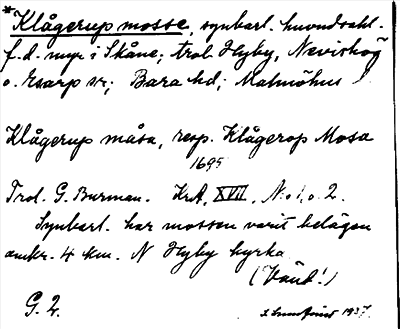 *Klågerup mosse, synbarl. huvudsakl.
f.d. myr i Skåne; trol. Hyby, Nevishög
o. Esarp sn; Bara hd; Malmöhus l.
Klågerup måsa, resp. Klågerop Mosa
1695
Trol. G. Burman. KrA, XVII, N:o 1, o. 2.
Synbarl. har mossen varit belägen
omkr. 4 km. N Hyby kyrka
(Vänd!)
G. 2.
1937